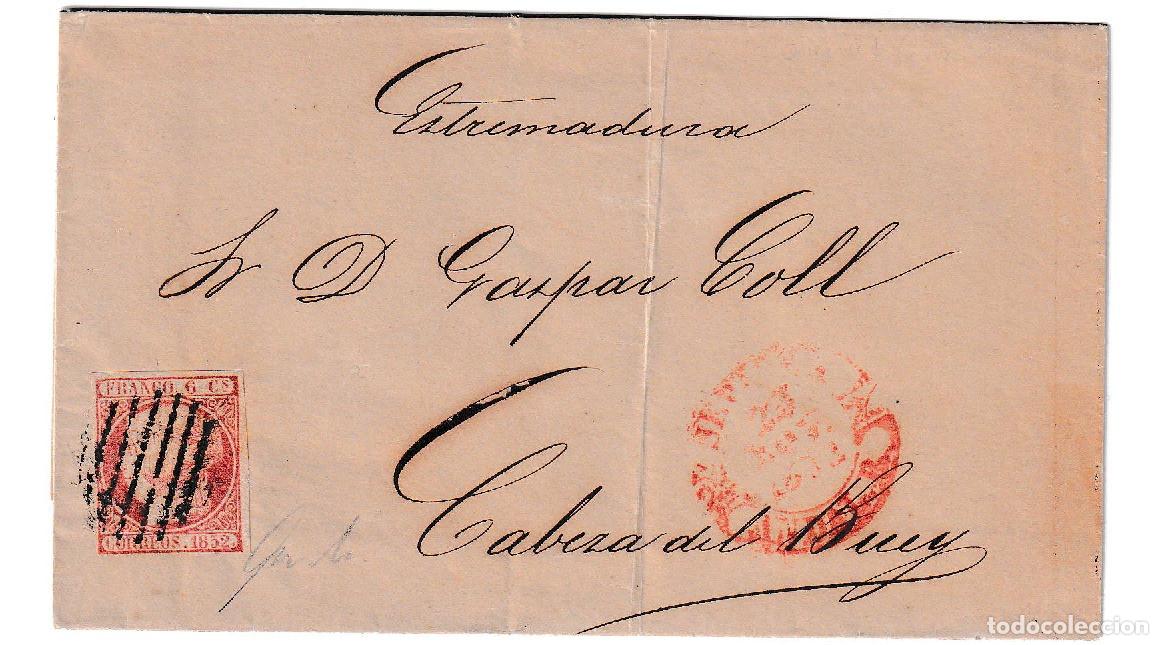 Estremadura
Sr D Gaspar Coll
FRANCO. 6 CS
CORREOS. 1852
Cabeza del Buey
todocoleccion